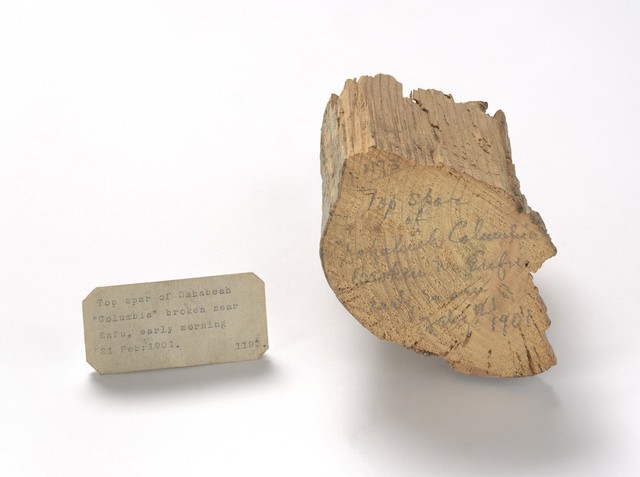 Top spar of Dahabeah
"Columbia" broken near
Enfu, early morning
21 Feb:1901. 1193.
1193
Top spar
of
Dahabeah Columbia
broken nr Enfu
early morn
1901